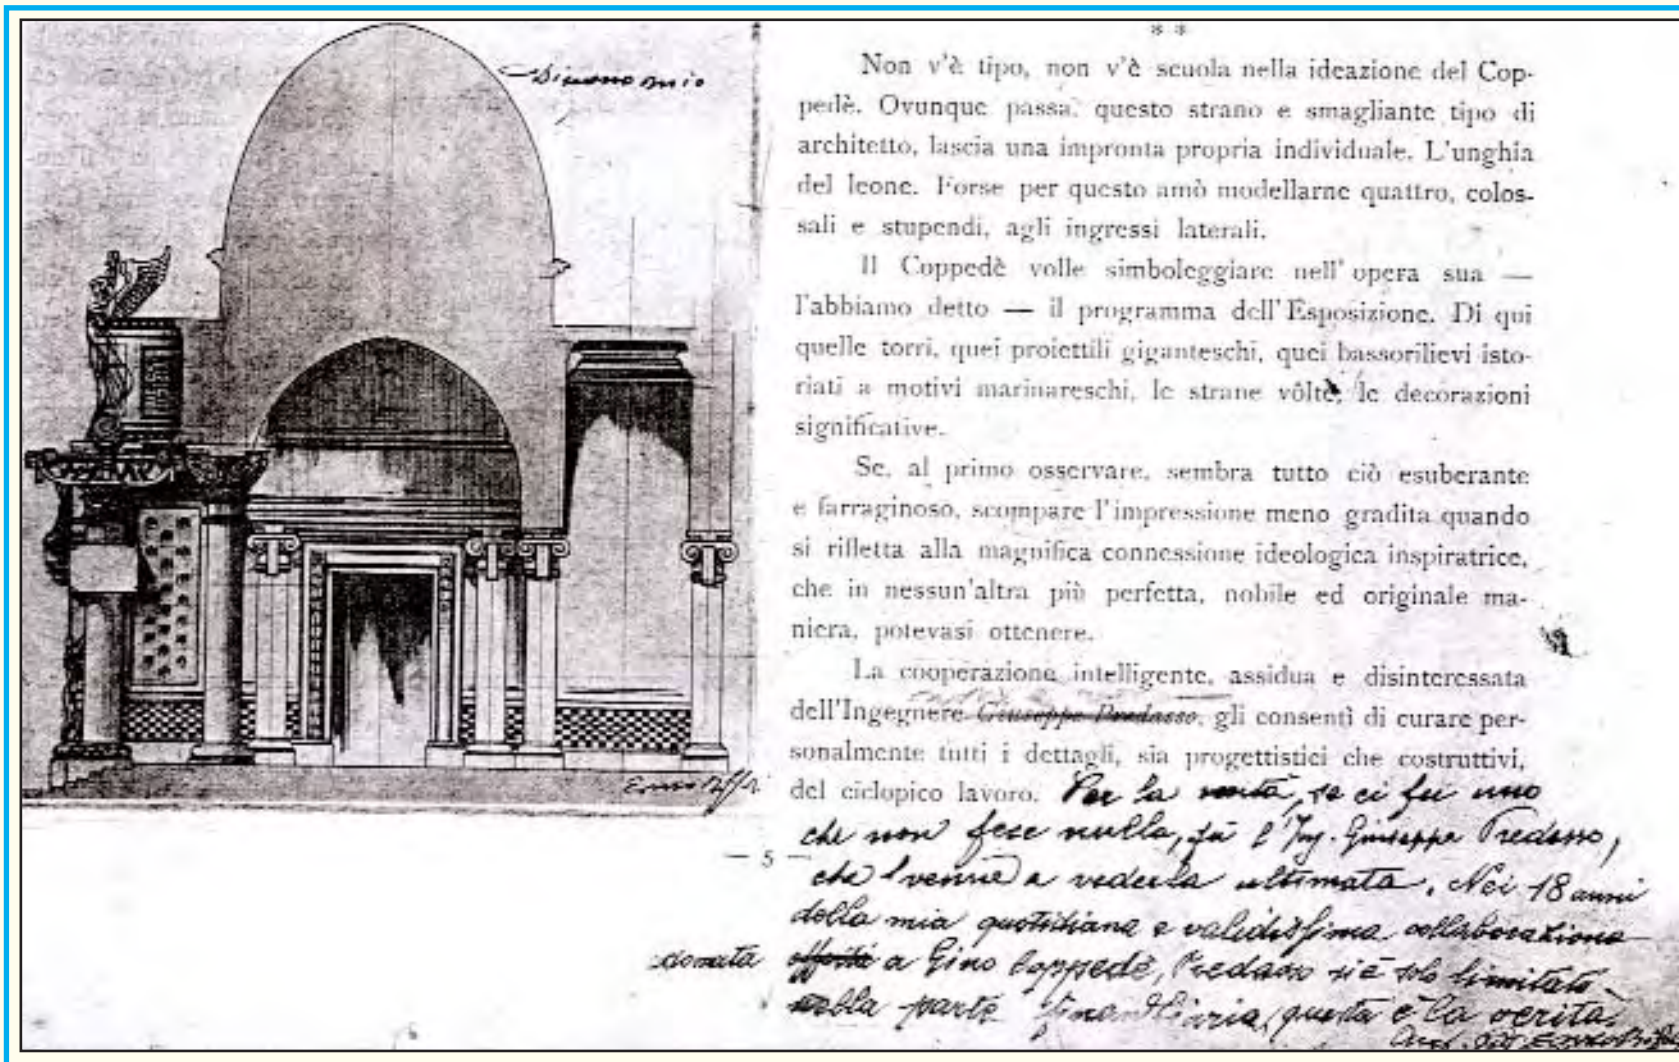 Disegno mio
Enzo Biffi
* *
Non v'è tipo, non v'è scuola nella ideazione del Cop-
pedè. Ovunque passa, questo strano e smagliante tipo di
architetto, lascia una impronta propria individuale. L'unghia
del leone. Forse per questo amò modellarne quattro, colos-
sali e stupendi, agli ingressi laterali.
Il Coppedè volle simboleggiare nell'opera sua —
l'abbiamo detto — il programma dell'Esposizione. Di qui
quelle torri, quei proiettili giganteschi, quei bassorilievi isto-
riati a motivi marinareschi, le strane vôlte, le decorazioni
significative.
Se, al primo osservare, sembra tutto ciò esuberante
e farraginoso, scompare l'impressione meno gradita quando
si rifletta alla magnifica connessione ideologica inspiratrice,
che in nessun'altra più perfetta, nobile ed originale ma-
niera, potevasi ottenere.
La cooperazione intelligente, assidua e disinteressata
dell'Ingegnere Giuseppe Predasso, gli consentì di curare per-
sonalmente tutti i dettagli, sia progettistici che costruttivi,
del ciclopico lavoro. Per la verità, se ci fu uno
che non fece nulla, fu l'Ing. Giuseppe Predasso,
— 5 —
che venne a vederla ultimata. Nei 18 anni
della mia quotidiana e validissima collaborazione
donata offerta a Gino Coppedè, Predasso si è solo limitato
nella parte finanziaria, questa è la verità.
Enzo Biffi